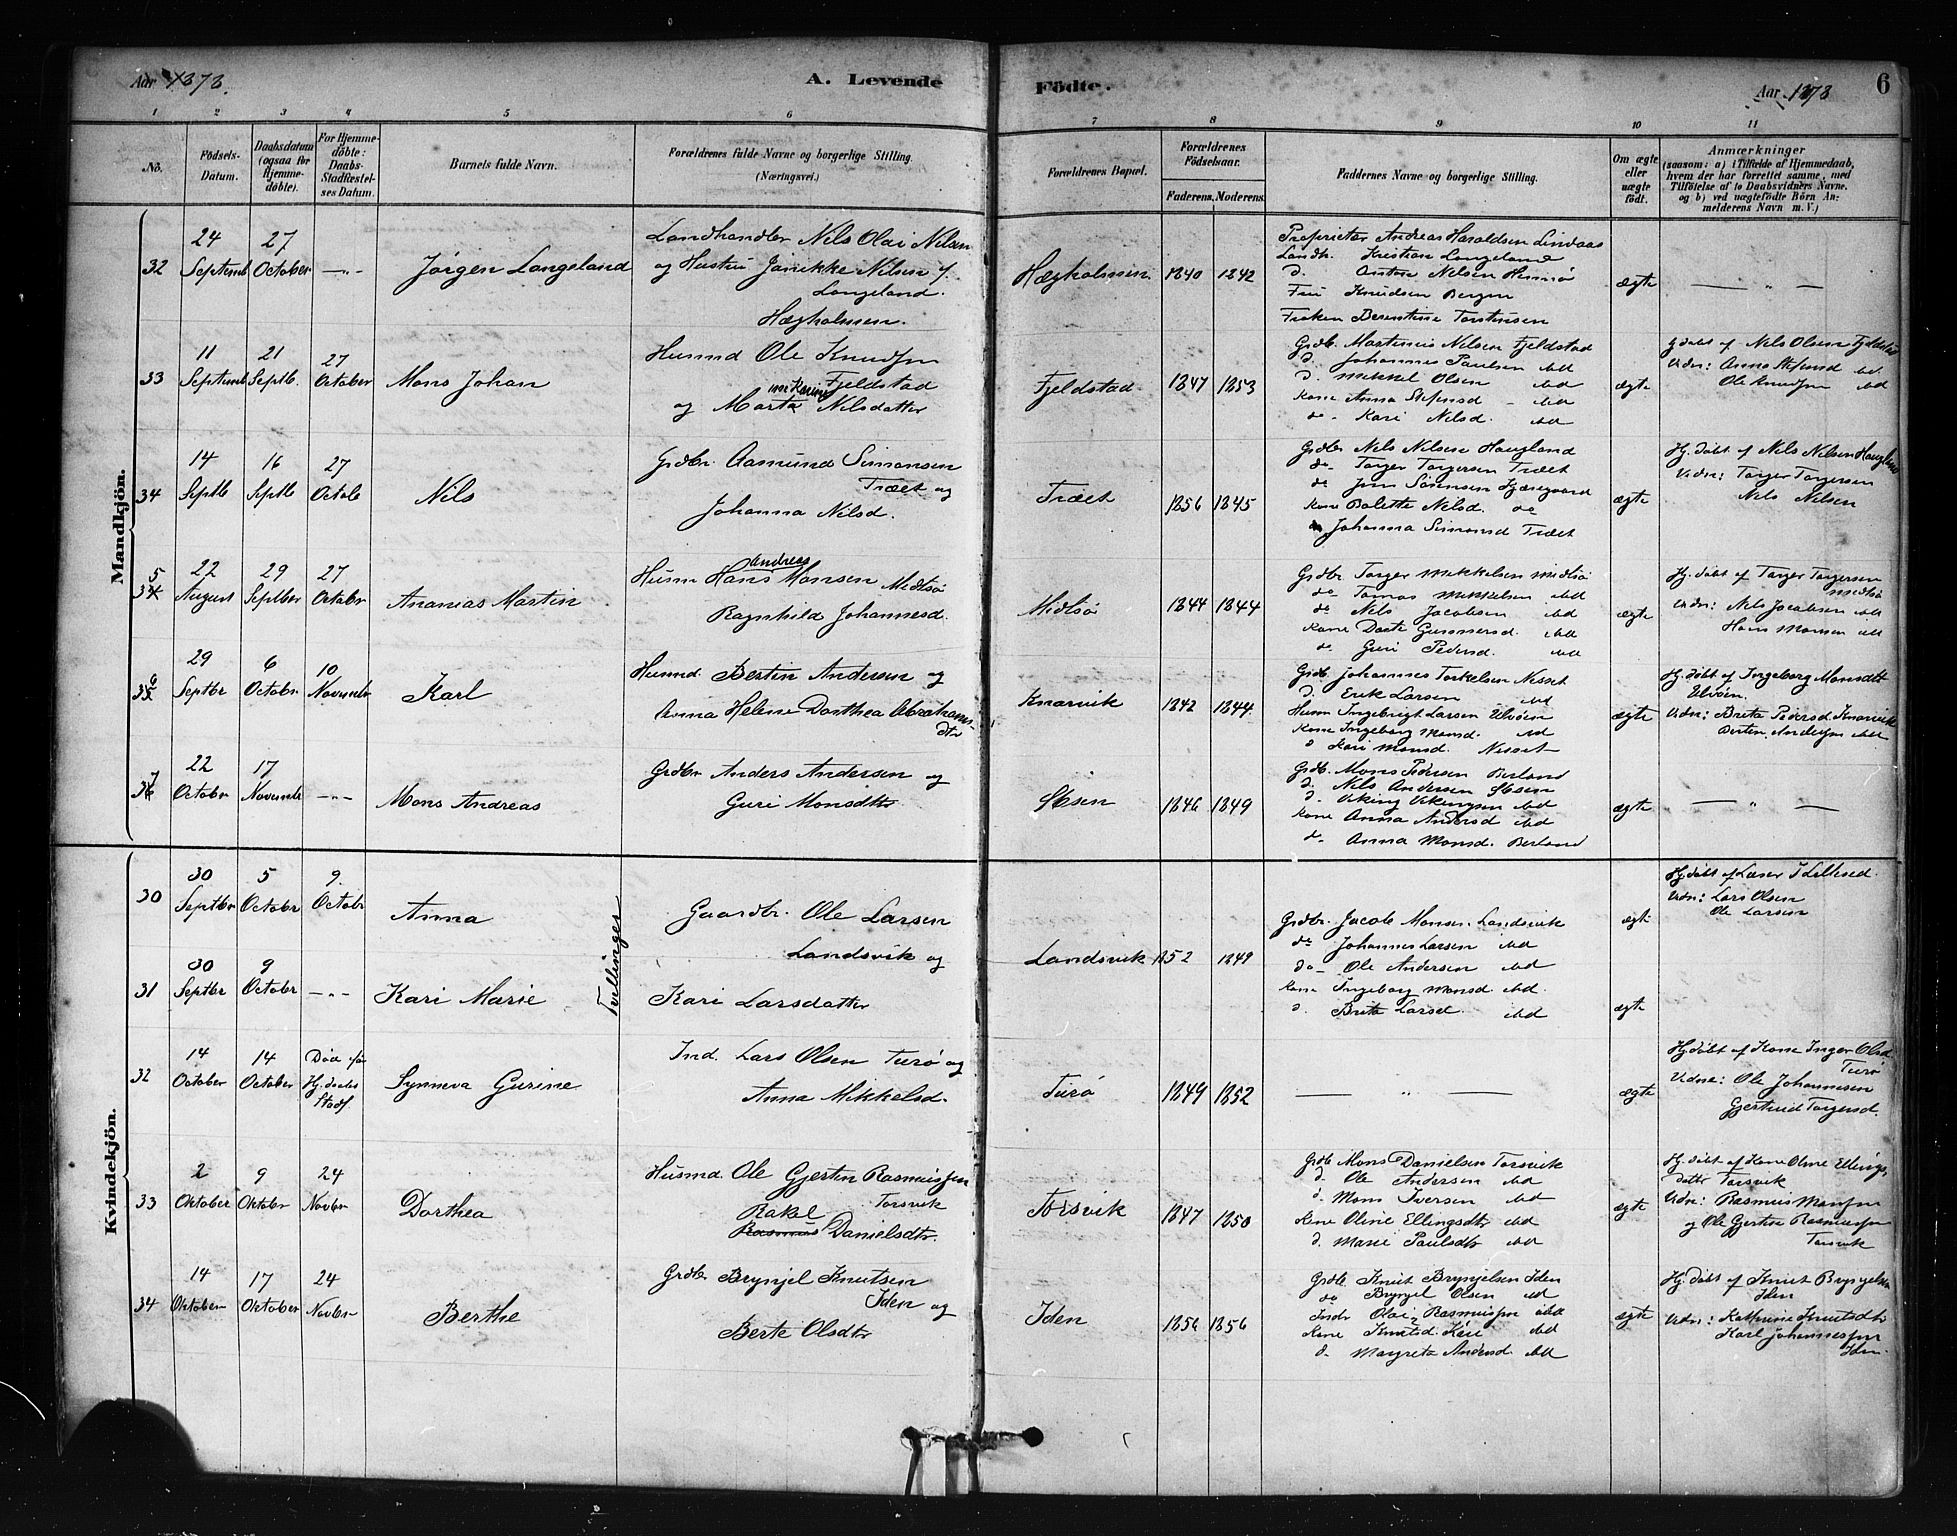 Aar 1878.
A. Levende
Födte.
Aar 1878
6
1 2 3 4 5 6 7 8 9 10 11
No.
Födsels-Datum.
Daabsdatum (ogsaa for Hjemme-döbte).
For Hjemme-döbte: Daabs-Stadfæstel-ses Datum.
Barnets fulde Navn.
Forældrenes fulde Navne og borgerlige Stilling.
(Næringsvei.)
Forældrenes Bopæl.
Forældrenes Födselsaar.
Faderens. Moderens.
Faddernes Navne og borgerlige Stilling.
Om ægte eller uægte födt.
Anmærkninger
(saasom: a) i Tilfælde af Hjemmedaab,
hvem der har forrettet samme, med
Tilföielse af to Daabsvidners Navne.
og b) ved uægtefödte Börn An-
melderens Navn m. V.)
Mandkjön.
32
24 Septemb
27 October
—„—
Jörgen Langeland
Landhandler Nils Olai Nilsen
og Hustru Janikke Nilsen f.
Langeland.
Hægholmen.
Hægholmen.
1840 1842
Proprietær Andreas Haraldsen Lindaas
Landh. Kristian Langeland
d. Anton Nilsen Hennö
Fru Knudsen Bergen
Fröken Berentine Torstensen
ægte
— „ —
33
11 Septemb
21 Septb.
27 October
Mons Johan
Husmd Ole Knudsen
Fjeldstad
og Marta Karine Nilsdatter
Fjeldstad
1847 1853
Grdb. Martinus Nilsen Fjeldstad
d. Johannes Paulsen ibd
d. Mikkel Olsen ibd
Kone Anna Stefensd - ibd
do- Kari Nilsd. ibd
ægte
hjdöbt af Nils Olsen Fjeldstad
Vidn: Anna Stefensd ibd.
Ole Knudsen ibd
34
14 Septb
16 Septb
27 Octob
Nils
Grdbr. Aamund Simonsen
Træet og
Johanna Nilsd.
Træet
1856 1845
Grdbr Nils Nilsen Haugland
do- Torger Torgersen Træet
do Jens Sörensen Kjæregaard
Kone Bolette Nilsd. do
Johanna Simonsd Træet
ægte
Hj. döbt af Nils Nilsen Haugland
Vidn: Torger Torgersen
Nils Nilsen
345
22 August
29 Septber
27 Octobr
Ananias Martin
Husm Hans Andreas Monsen Midtsö
Ragnhild Johannesd.
Midtsö
1844 1844
Grdbr. Torger Mikkelsen Midtsö
do Tomas Mikkelsen ibd
do Nils Jacobsen ibd
Kone Dorte Gunnersd. ibd
do Guri Pedersd. ibd
ægte
Hj. döbt af Torger Torgersen
Midtsö
Vidn: Nils Jacobsen ibd
Hans Monsen ibd
356
29 Septbr
6 Octobr
10 Novembr
Karl
Husmd. Bertin Andersen og
Anna Helene Dorthea Abrahams
dtr
Knarvik
1842 1844
Grdb Johannes Torkelsen Nesset
d. Erik Larsen ibd
Husm Ingebrigt Larsen Ulvöen
Kone Ingeborg Monsd. ibd
d Kari Monsd. Nesset
ægte
Hj. döbt af Ingeborg Monsdtr
Ulvöen.
Vidn: Brita Pedersd Knarvik
Bertin Andersen ibd
367
22 Octobr
17 Novemb
—„—
Mons Andreas
Grdbr Anders Andersen og
Guri Monsdtr
1846 1849
Grdb. Mons Pedersen Berland
d. Nils Andersen
d. Viking Vikingsen ibd
Kone Anna Andersd ibd
do. Anna Monsd. Berland
ægte
— „ —
Kvindekjön.
30
30 Septbr
5 Octobr
9. Octobr
Anna
Tvillinger
Gaardbr. Ole Larsen
Landsvik og
Landsvik 1852 1849
Grdbr. Jacob Monsen Landsvik
do Johannes Larsen ibd
do- Ole Andersen ibd
Kone Ingeborg Monsd. ibd.
d. Brita Larsd. ibd
ægte
Hj. döbt af Læser I Lillesed.
Vidn: Lars Olsen
Ole Larsen
31
30 Septbr
9 Octobr
—„—
Kari Marie
Kari Larsdatter
ægte
32
14 October
14 October
Död för Hj. daabs Stadf.
Synneva Gurine
Ind. Lars Olsen Turö og
Anna Mikkelsd.
Turö
1849 1852
— „ —
ægte
Hj döbt af Kone Inger Olsd.
Turö
Vidne: Ole Johannesen
Gjertrud Torgersd.
33
2 Oktober
9 Oktobr
24 Novbr
Dorthea
Husmd. Ole Gjertin Rasmussen
Torsvik
Rakel
Rasmus Danielsdtr.
Torsvik
1847 1850
Grdb Mons Danielsen Torsvik
d. Ole Andersen ibd
d. Mons Iversen ibd
Kone Oline Ellingsdtr ibd
d. Marie Paulsdtr ibd
ægte
Hj. döbt af Kone Oline Ellings
datter Torsvik
Vidn: Rasmus Monsen
og Ole Gjertin Rasmussen
Torsvik
34
14 Oktober
17 Oktober
24 Novbr
Berthe
Grdbr Brynjel Knutsen
Iden og
Berte Olsdtr
Iden
1856 1856
Grdb Knut Brynjelsen Iden
do Brynjel Olsen ibd
Indr Olai Rasmussen ibd
Kone Knutsd. Kari ibd
d. Margreta Andersd. ibd
ægte
Hj. döbt af Knut Brynjelsen
Iden
Vidn: Kathrine Knutsdtr
Karl Johannessen
Iden.